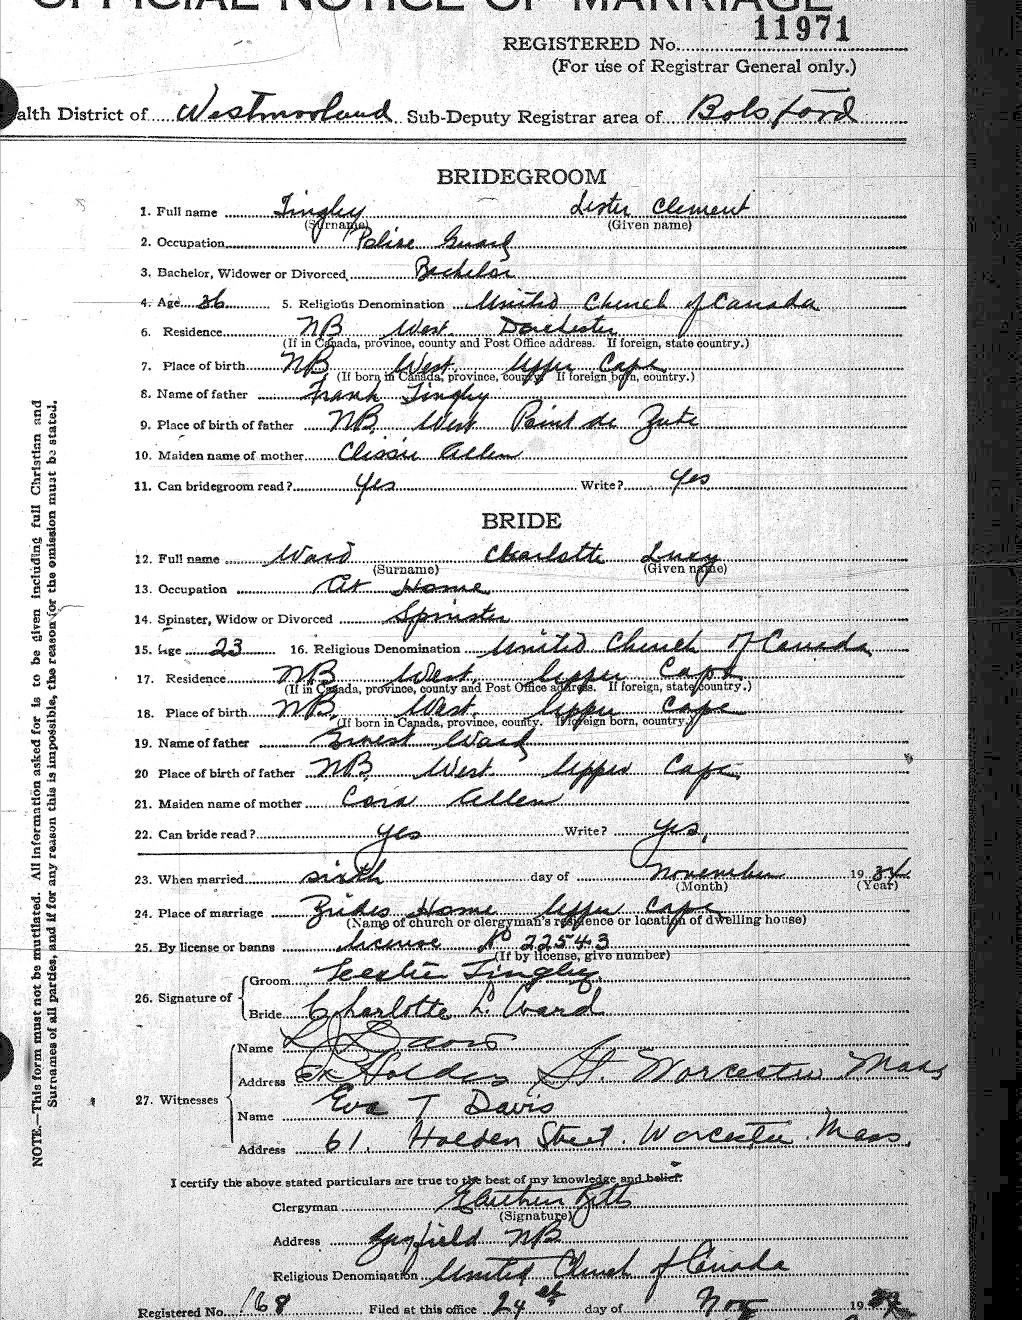 OFFICIAL NOTICE OF MARRIAGE
11971
REGISTERED No.
(For use of Registrar General only.)
alth District of Westmorland Sub-Deputy Registrar area of Botsford
BRIDEGROOM
1. Full name Tingley Lester Clement
(Surname) (Given name)
2. Occupation Police Guard
3. Bachelor, Widower or Divorced Bachelor
4. Age 36 5. Religious Denomination United Church of Canada
6. Residence NB West. Dorchester
(If in Canada, province, county and Post Office address. If foreign, state country.)
7. Place of birth NB West. Upper Cape
(If born in Canada, province, county. If foreign born, country.)
8. Name of father Frank Tingley
9. Place of birth of father NB West Point de Bute
10. Maiden name of mother Clissie Allen
11. Can bridegroom read? Yes Write? Yes
BRIDE
12. Full name Ward Charlotte Lucy
(Surname) (Given name)
13. Occupation At Home
14. Spinster, Widow or Divorced Spinster
15. Age 23 16. Religious Denomination United Church of Canada
17. Residence NB West. Upper Cape
(If in Canada, province, county and Post Office address. If foreign, state country.)
18. Place of birth NB. West. Upper Cape
(If born in Canada, province, county. If foreign born, country.)
19. Name of father Ernest Ward
20 Place of birth of father NB. West. Upper Cape
21. Maiden name of mother Cora Allen
22. Can bride read? yes Write? yes,
23. When married sixth day of November 1934
(Month) (Year)
24. Place of marriage Brides Home Upper Cape
(Name of church or clergyman's residence or location of dwelling house)
25. By license or banns License No 22543
(If by license, give number)
26. Signature of
Groom Leslie Tingley
Bride Charlotte L. Ward
27. Witnesses
Name Davis
Address Holden St. Worcester Mass
Name Eva T Davis
Address 61. Holden Street. Worcester. Mass.
I certify the above stated particulars are true to the best of my knowledge and belief.
Clergyman
(Signature)
Address NB
Religious Denomination United Church of Canada
Registered No. 168 Filed at this office 24th day of Nov 19
NOTE.—This form must not be mutilated. All information asked for is to be given including full Christian and
Surnames of all parties, and if for any reason this is impossible, the reason for the omission must be stated.